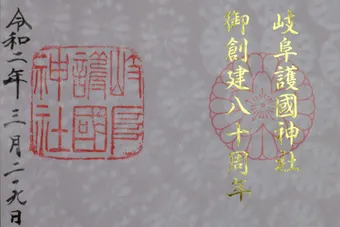 岐阜護國神社
御創建八十周年
岐阜
護國
神社
令和二年三月二九日